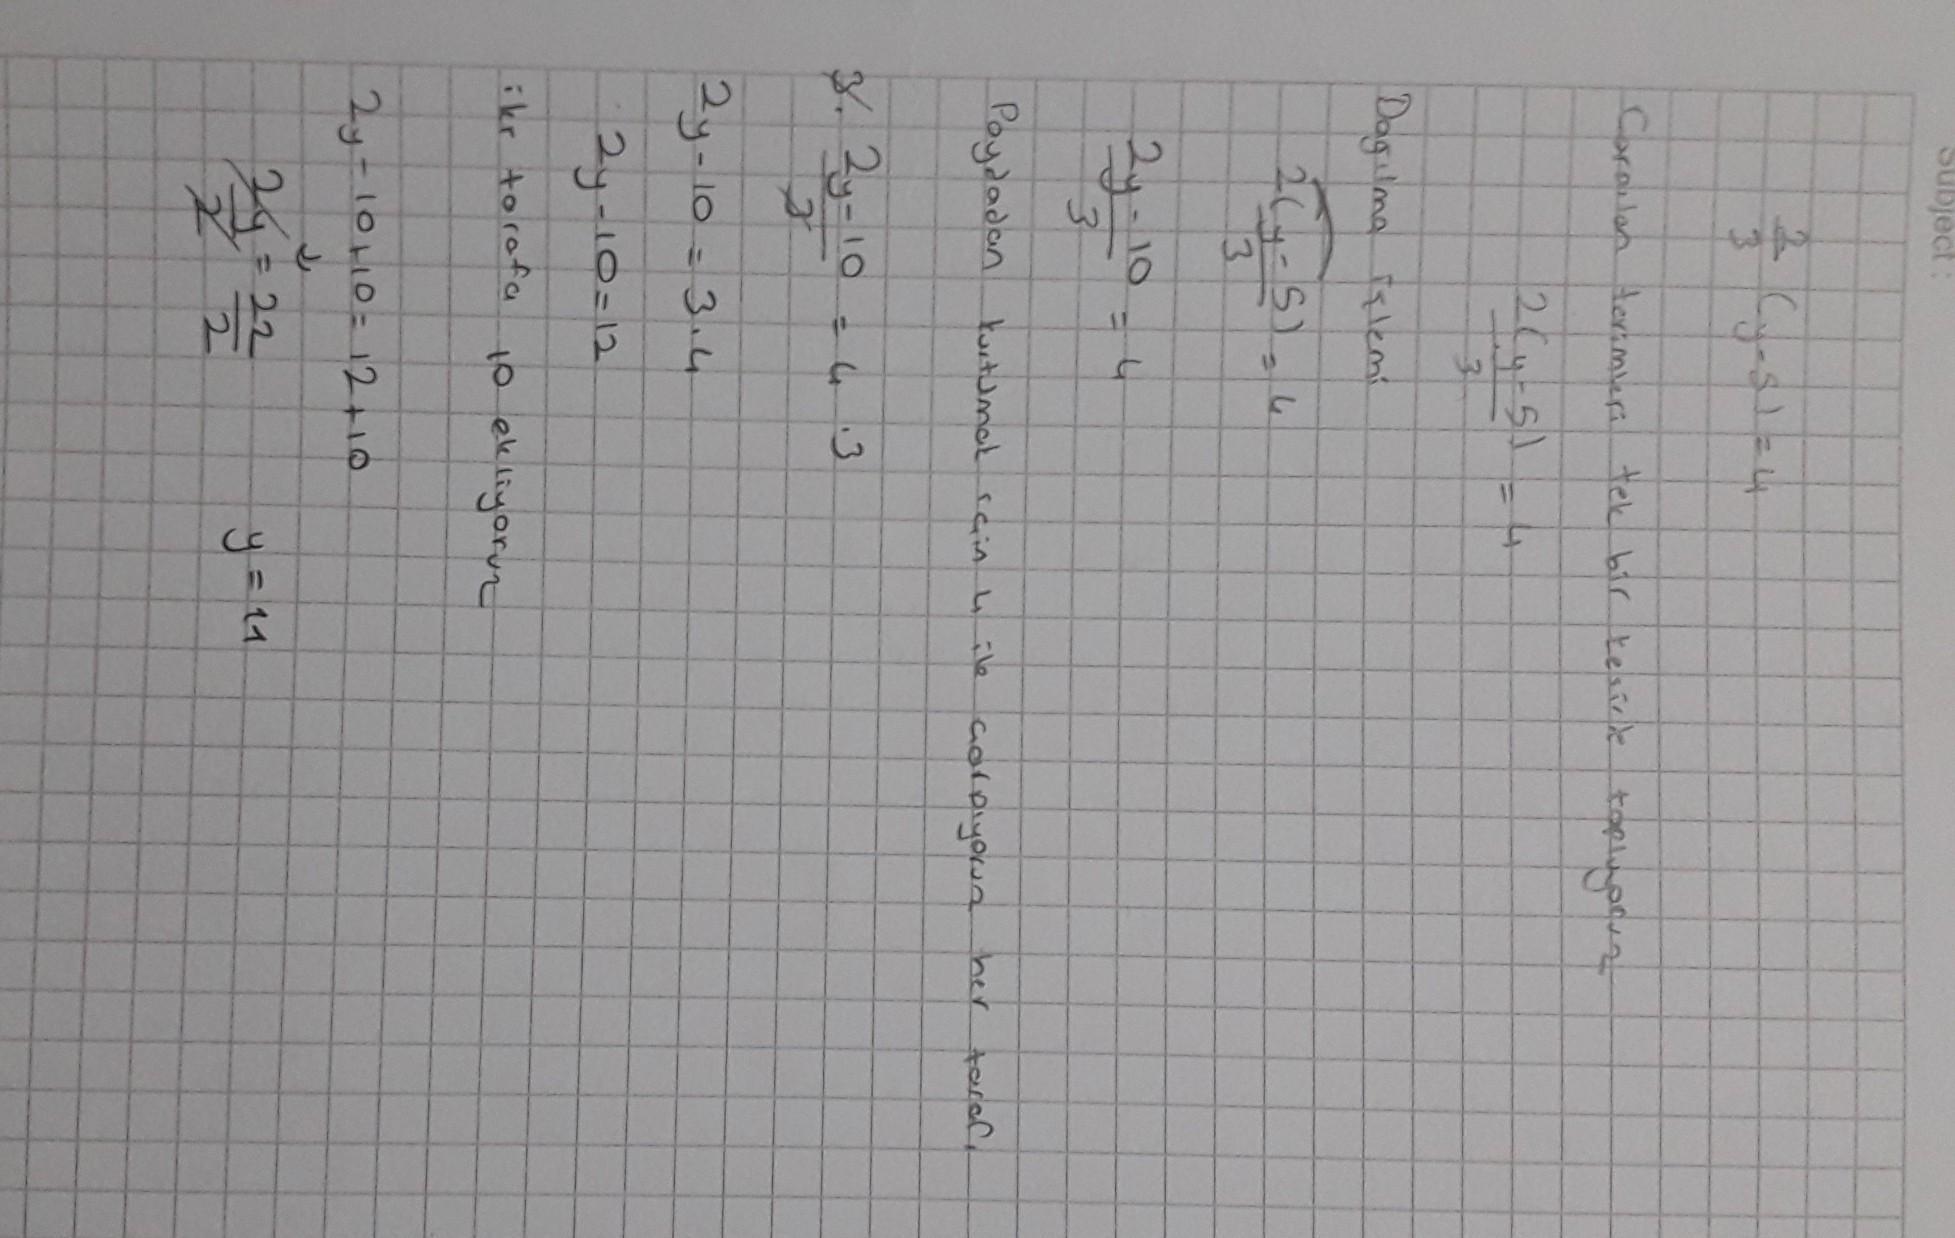 Subject:
2/3 (y-5) = 4
Carpılan terimleri tek bir kesirle topluyoruz
2(y-5)/3 = 4
Dagılma İşlemi
2(y-5)/3 = 4
2y-10/3 = 4
Paydadan kurtulmak için 4 ile carpıyoruz her tarafı
3. 2y-10/3 = 4 .3
2y-10 = 3.4
2y-10=12
iki tarafa 10 ekliyoruz
2y-10+10= 12+10
2y/2 = 22/2 y = 11